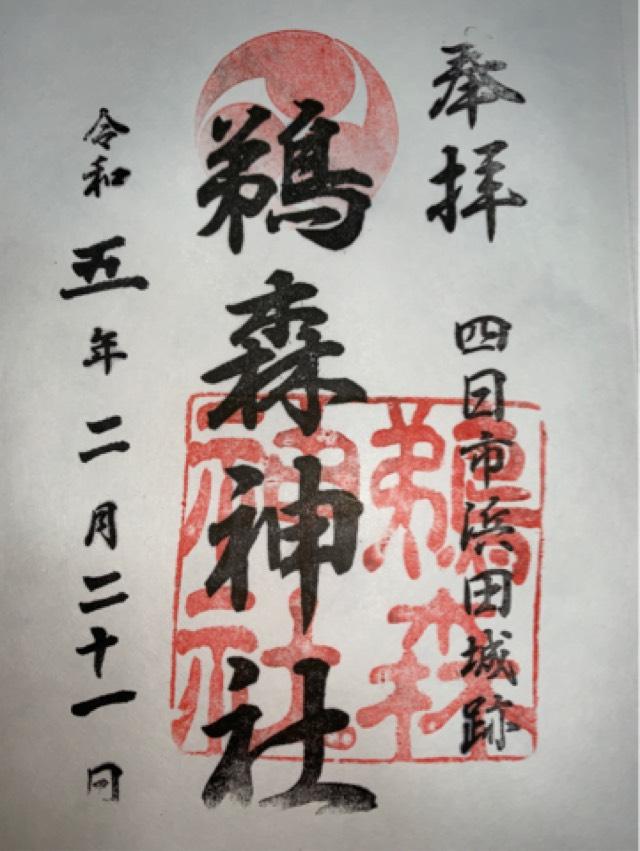 奉拝
四日市浜田城跡
鵜森神社
鵜森
神社
令和五年二月二十一日